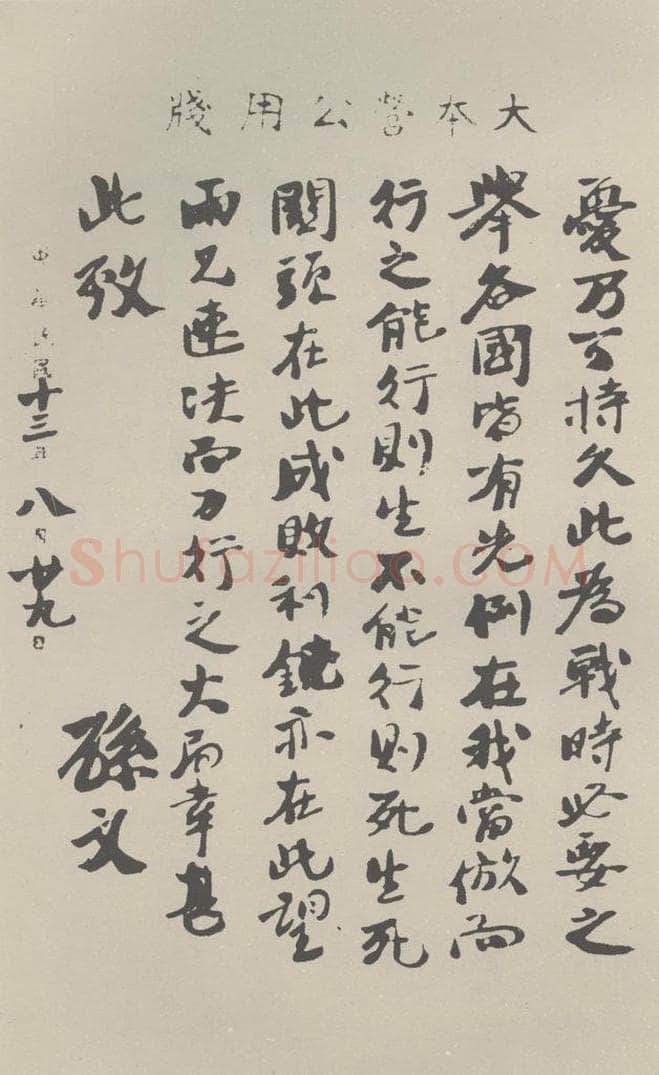 大本營公用牋
憂乃可持久此為戰時必要之
舉各國皆有先例在我當倣而
行之能行則生不能行則死生死
關頭在此成敗利鈍亦在此望
兩兄速決而力行之大局幸甚
此致
孫文
中華民國十三年八月廿九日
Shufaziliao.COM